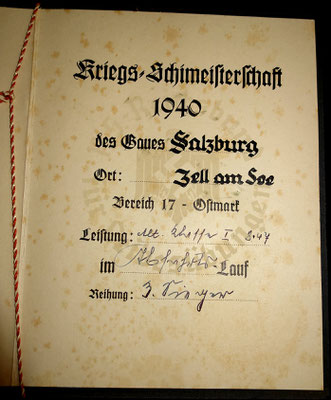 Kriegs-Schimeisterschaft
1940
des Gaues Salzburg
Ort: Zell am See
Bereich 17 - Ostmark
Leistung: Alt. Klasse I
im Abfahrts-Lauf
Reihung: 3. Sieger